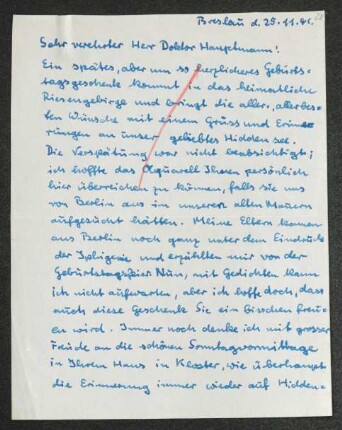 Breslau d. 25.11.41.
Sehr verehrter Herr Doktor Hauptmann!
Ein spätes, aber um so herzlicheres Geburts-
tagsgeschenk kommt in das heimatliche
Riesengebirge und bringt die aller, allerbes-
ten Wünsche mit einem Gruss und Erinne-
rungen an unser geliebtes Hiddensee.
Die Verspätung war nicht beabsichtigt;
ich hoffte das Aquarell Ihnen persönlich
hier überreichen zu können, falls Sie uns
von Berlin aus in unseren alten Mauern
aufgesucht hätten. Meine Eltern kamen
aus Berlin noch ganz unter dem Eindrucke
der Iphigenie und erzählten mir von der
Geburtstagsfeier. Nun, mit Gedichten kann
ich nicht aufwarten, aber ich hoffe doch, dass
auch diese Geschenke Sie ein bisschen freu-
en wird. Immer noch denke ich mit grosser
Freude an die schönen Sonntagvormittage
in Ihrem Haus in Kloster, wie überhaupt
die Erinnerung immer wieder auf Hidden-